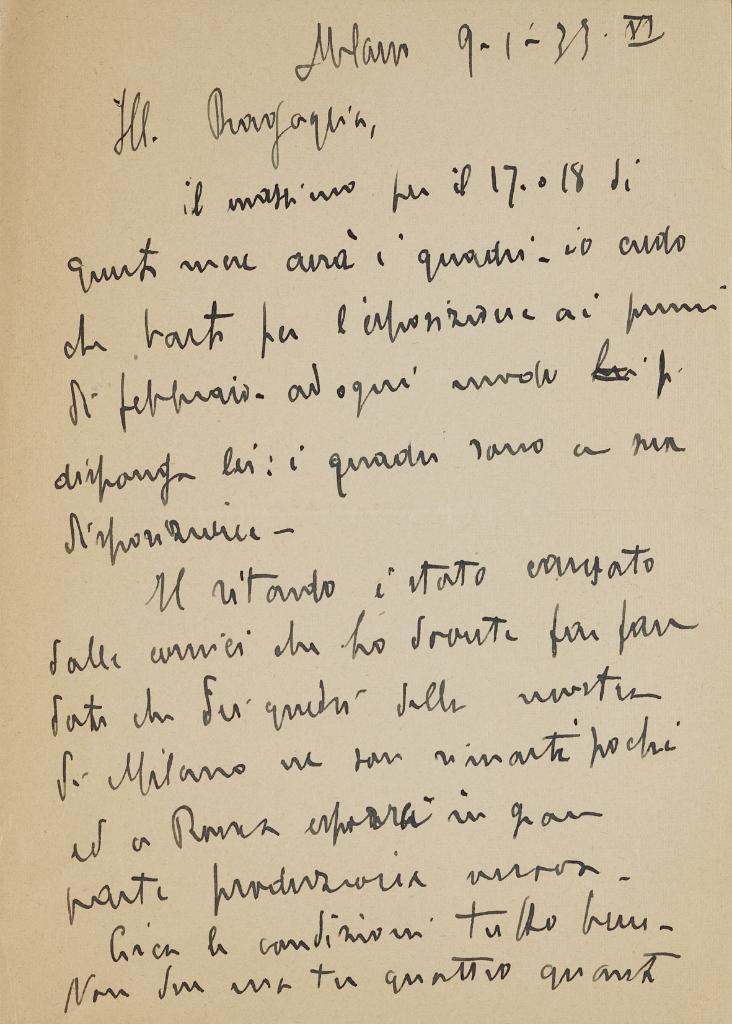 Milano 9-1-33. XI
Ill. Bragaglia,
il massimo per il 17. o 18 di
questo mese avrà i quadri - io credo
che basti per l'esposizione ai primi
di febbraio - ad ogni modo lei
disponga lei: i quadri sono a sua
disposizione -
Il ritardo è stato causato
dalle cornici che ho dovute far fare
dato che dei quadri della mostra
di Milano ne son rimasti pochi
ed a Roma esporrei in gran
parte produzione nuova -
Circa le condizioni tutto bene -
Non due ma tre quattro quanti